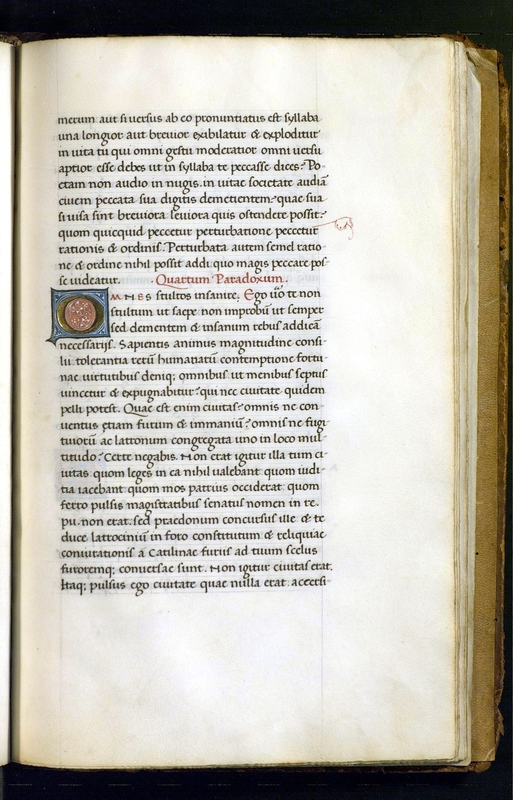 merum aut si versus ab eo pronuntiatus est syllaba
una longior aut brevior exibilatur & exploditur
in vita tu qui omni gestu moderatior omni versu
aptior esse debes ut in syllaba te peccasse dices? Po
etam non audio in nugis. in vitae societate audiā
civem peccata sua digitis demetientem? quae sua
si visa sint breviora leviora quis ostendere possit?
quom quicquid peccetur perturbatione peccetur
rationis & ordinis? Perturbata autem semel ratio
ne & ordine nihil possit addi quo magis peccare pos
se videatur. Quartum Paradoxum.
OMNES stultos insanire. Ego ũo te non
stultum ut saepe non improbũ ut semper
sed dementem & insanum rebus addicā
necessarijs. Sapientis animus magnitudine consi
lii tolerantia rerũ humanarũ contemptione fortu
nae virtutibus deniq; omnibus ut menibus septus
vincetur & expugnabitur? qui nec civitate quidem
pelli potest. Quae est enim civitas? omnis ne con
ventus etiam ferum & immaniũ? omnis ne fugi
tivorũ ac latronum congregata uno in loco mul
titudo? Certe negabis. Non erat igitur illa tum ci
vitas quom leges in ea nihil valebant quom iudi
tia iacebant quom mos patrius occiderat quom
ferro pulsis magistratibus senatus nomen in re.
pu. non erat. sed praedonum concursus ille & te
duce latrocinium in foro constitutum & reliquiae
coniurationis a Catilinae furiis ad tuum scelus
furoremq; conversae sunt. Non igitur civitas erat.
Itaq; pulsus ego civitate quae nulla erat. accersi